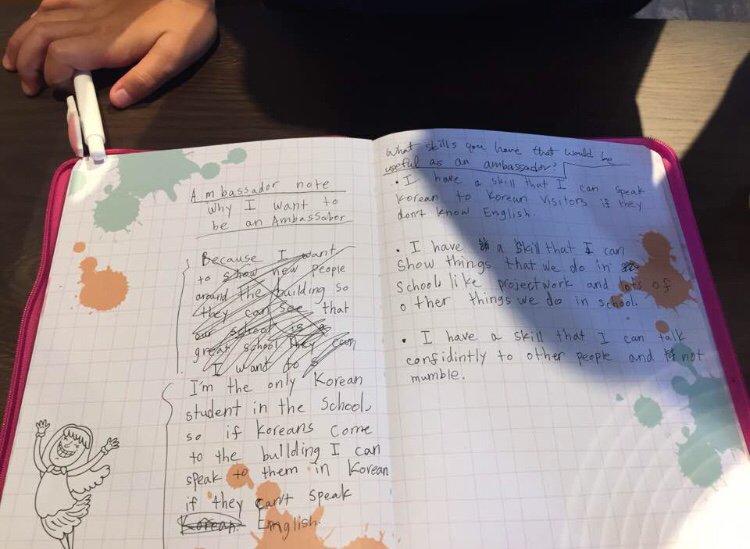 Ambassador note
Why I Want to
be an Ambassober
Because I want
to show new people
around the building so
they can see that
our school is a
great school they can
I want to s
I'm the only Korean
student in the School,
so if Koreans Come
to the building I can
speak to them in Korean
if they can't speak
Korean. English.
What skills you have that would be
useful as an ambassador?
• I have a skill that I can speak
Korean to Korean Visitors if they
don't know English.
• I have a skill that I can
show things that we do in
School like projectwork and lots of
other things we do in school.
• I have a skill that I can talk
confidintly to other people and not
mumble.